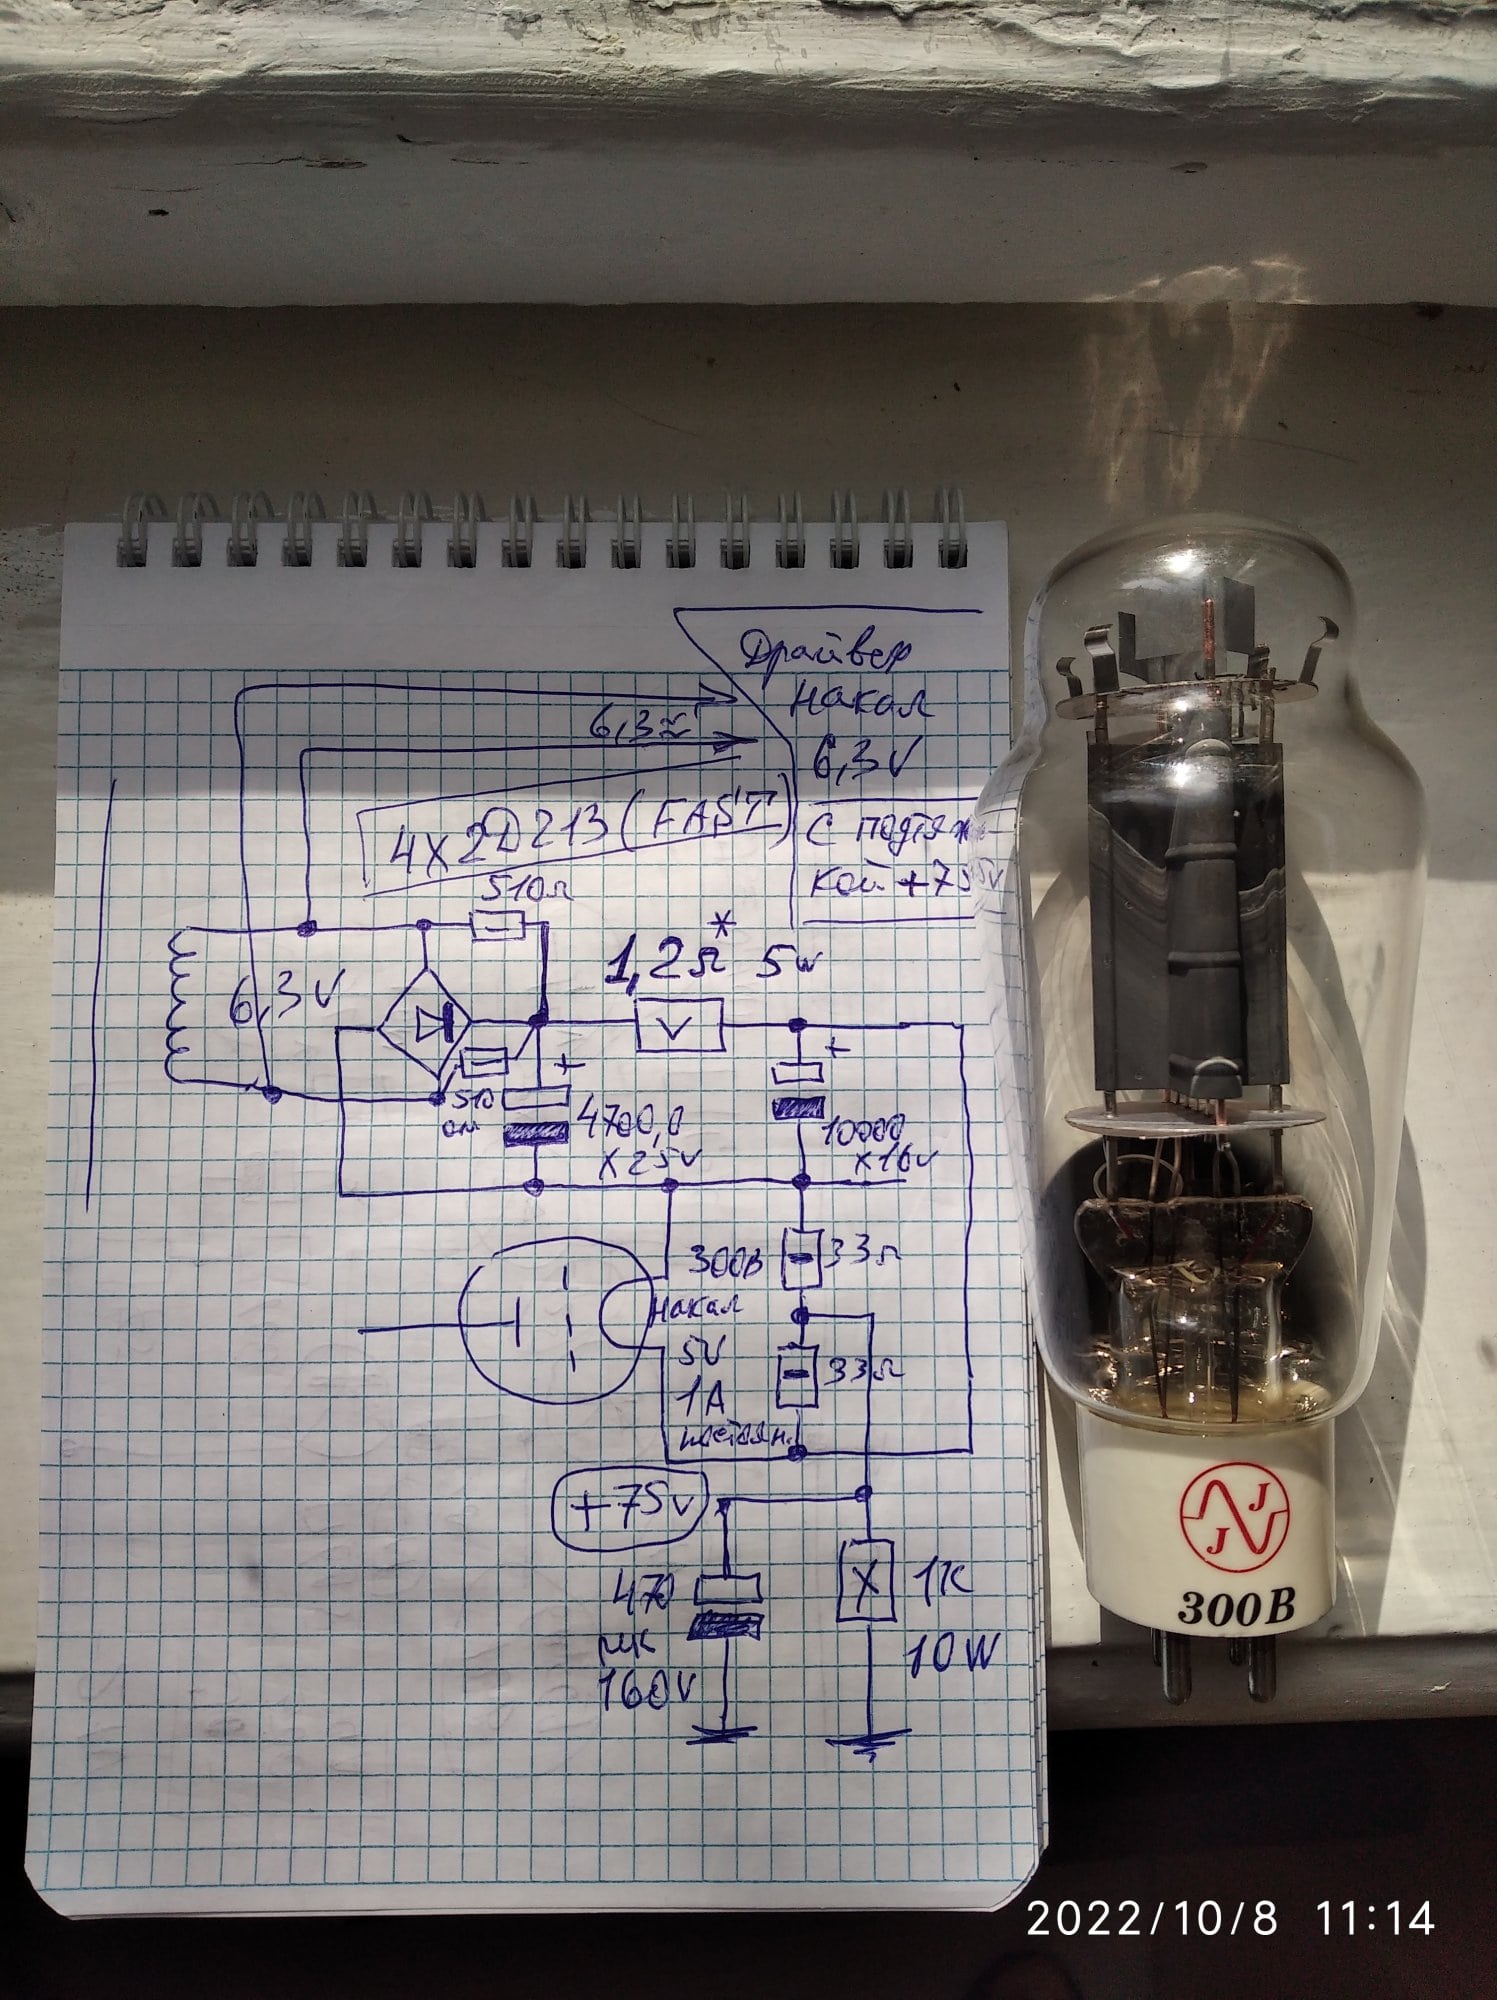 Драйвер
накал
6,3≈
6,3V
4X2D213 (FAST)
С подтяж-
кой +75V
510Ω
1,2Ω* 5W
6,3V
V
+
+
510
ом
4700,0
X25V
10000
X16V
300В
33Ω
накал
5V
33Ω
1A
постоян.
+75V
470
мк
160V
X
1К
10W
JJ
300B
2022/10/8 11:14